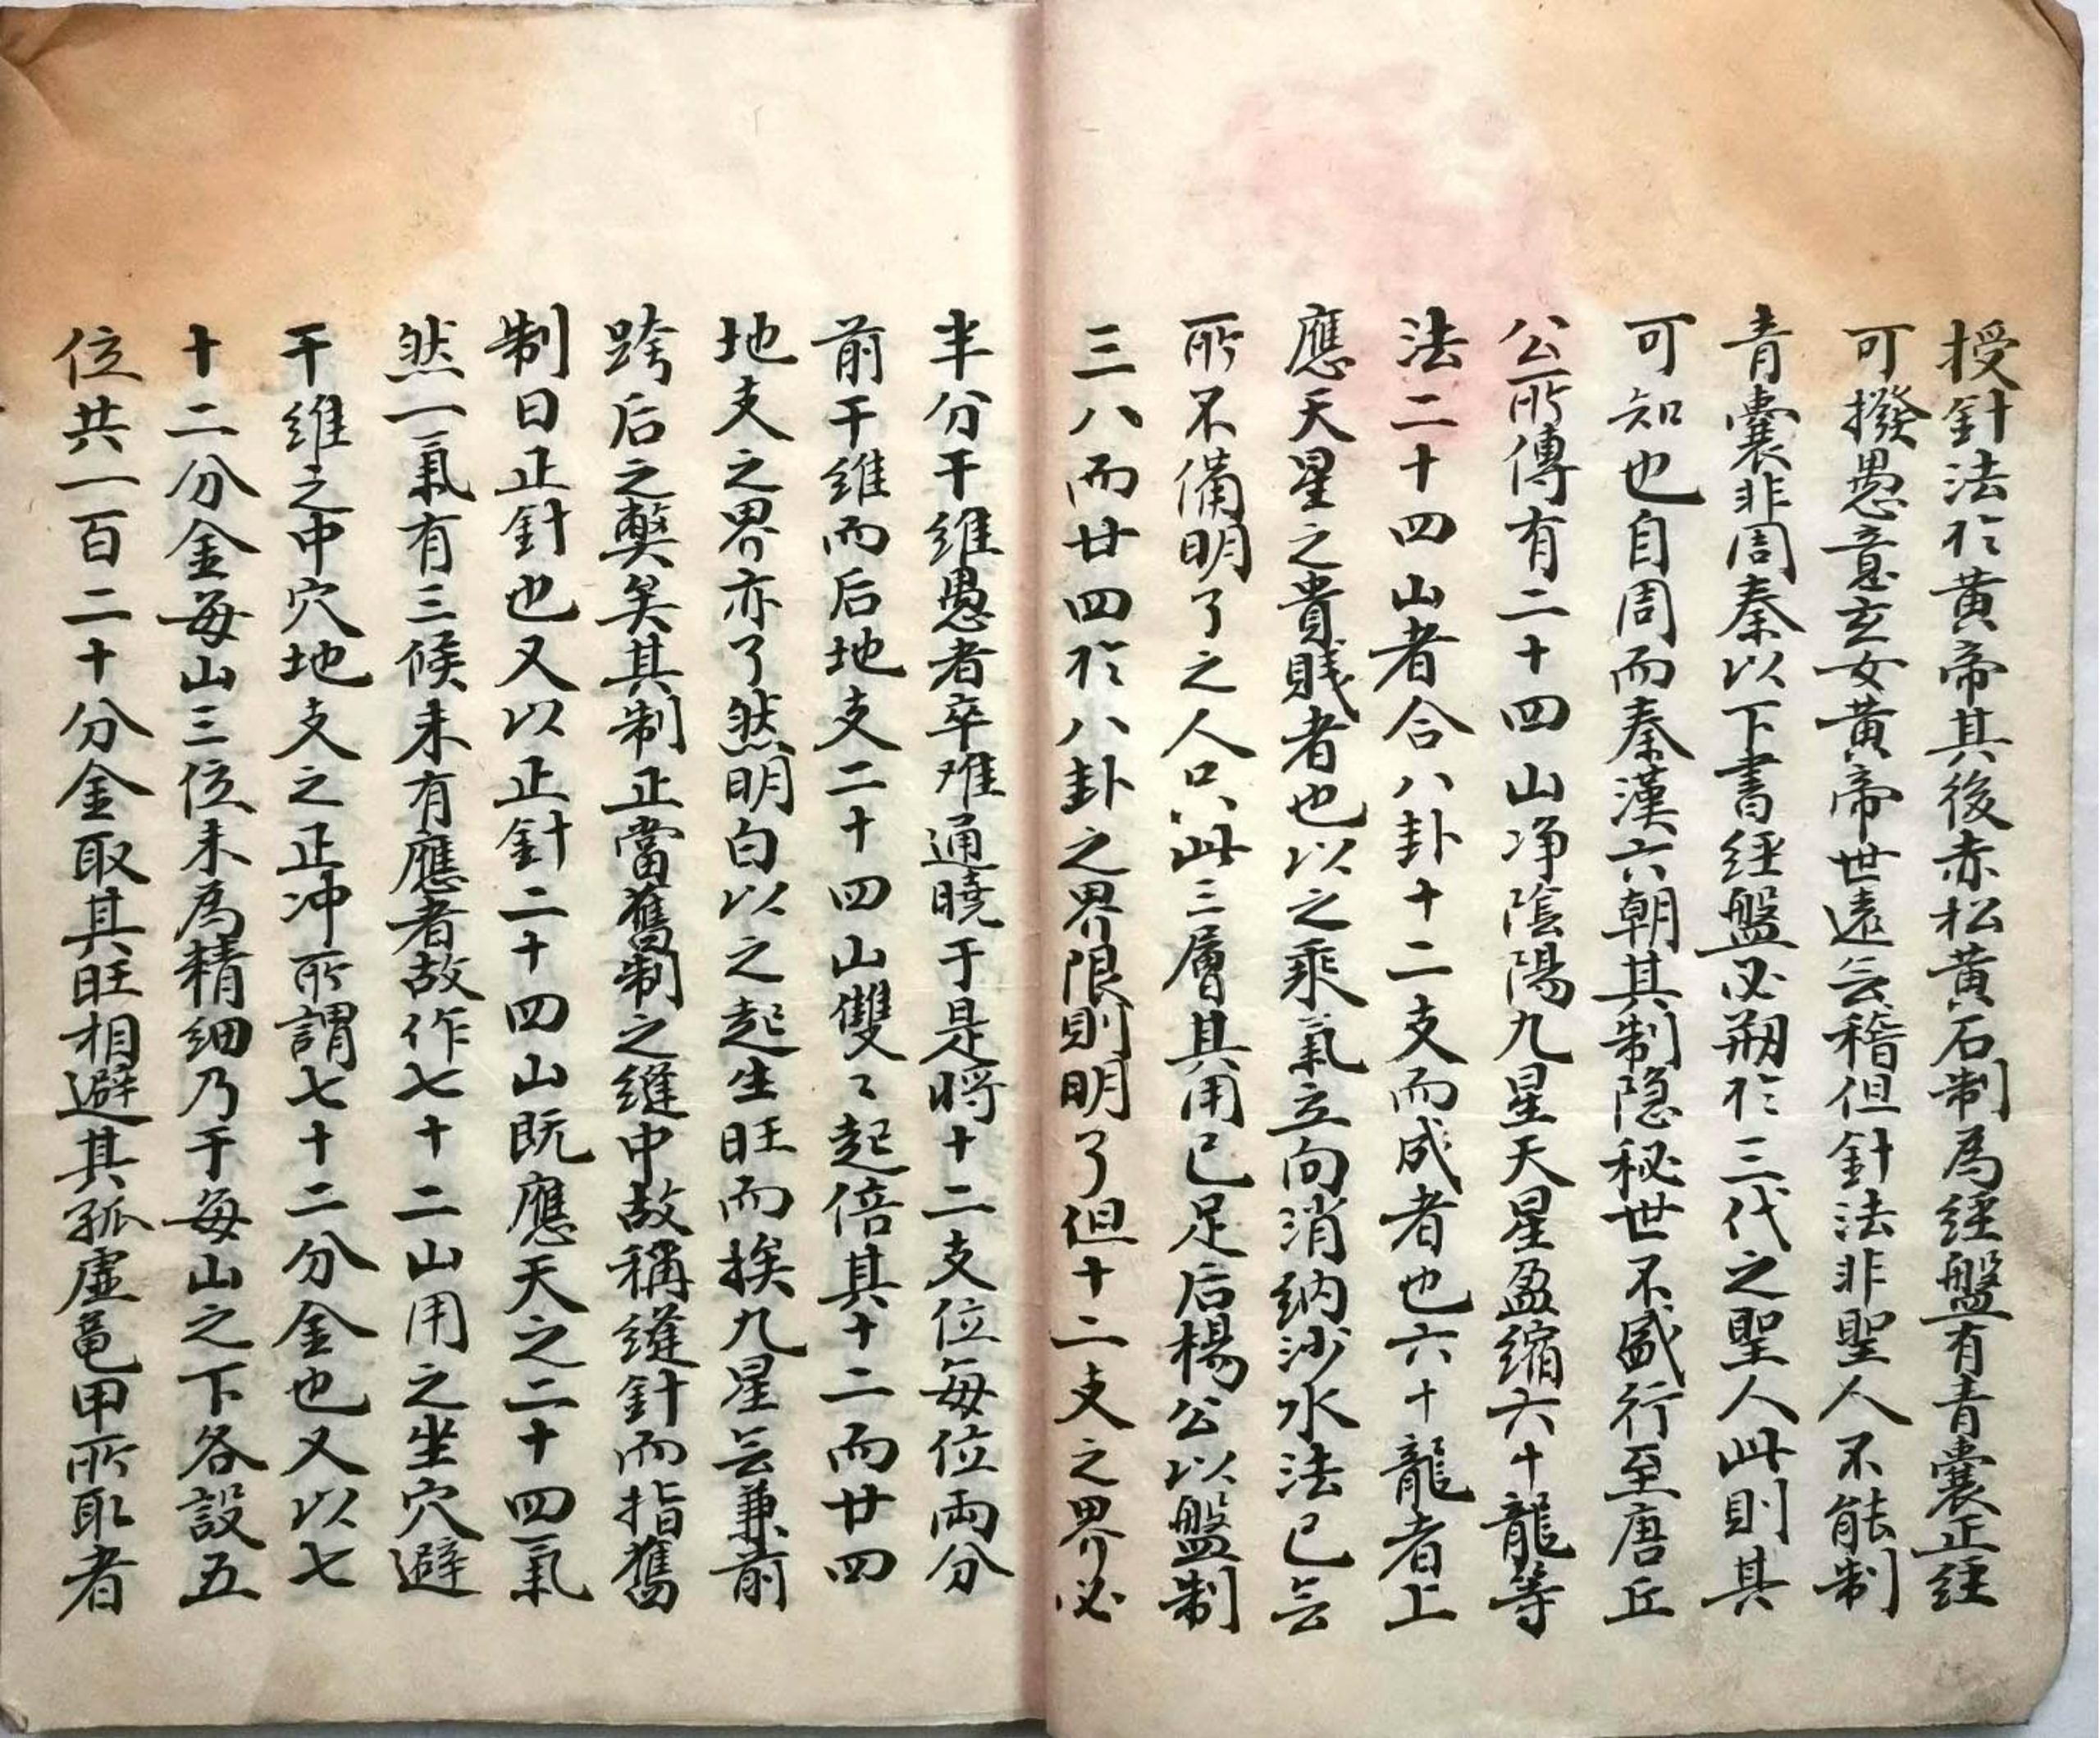 授針法於黃帝其後赤松黃石制為經盤有青囊正経
可撥愚意玄女黃帝世遠云稽但針法非聖人不能制
青囊非周秦以下書経盤必朔於三代之聖人此則其
可知也自周而秦漢六朝其制隐秘世不盛行至唐丘
公所傳有二十四山净陰陽九星天星盈縮六十龍等
法二十四山者合八卦十二支而成者也六十龍者上
應天星之貴賎者也以之乘氣立向消納沙水法已云
所不備明了之人只此三層其用已足后楊公以盤制
三八而廿四於八卦之界限則明了但十二支之界必
半分干維愚者卒难通曉于是将十二支位每位両分
前干維而后地支二十四山雙〻起倍其十二而廿四
地支之界亦了然明白以之起生旺而挨九星云兼前
跨后之弊矣其制正當舊制之縫中故稱縫針而指舊
制曰正針也又以正針二十四山既應天之二十四氣
然一氣有三候未有應者故作七十二山用之坐穴避
干維之中穴地支之正冲所謂七十二分金也又以七
十二分金每山三位未為精细乃于每山之下各設五
位共一百二十分金取其旺相避其孤虚亀甲所取者